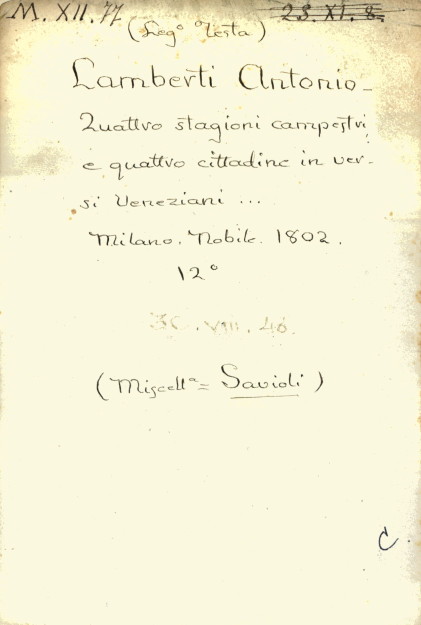 M. XII. 77
23. XI. 8.
(Leg.º Testa)
Lamberti Antonio -
Quattro stagioni campestri
e quattro cittadine in ver-
si Veneziani ...
Milano. Nobile. 1802.
12º
30. VIII. 46.
(Miscellª = Savioli)
C.